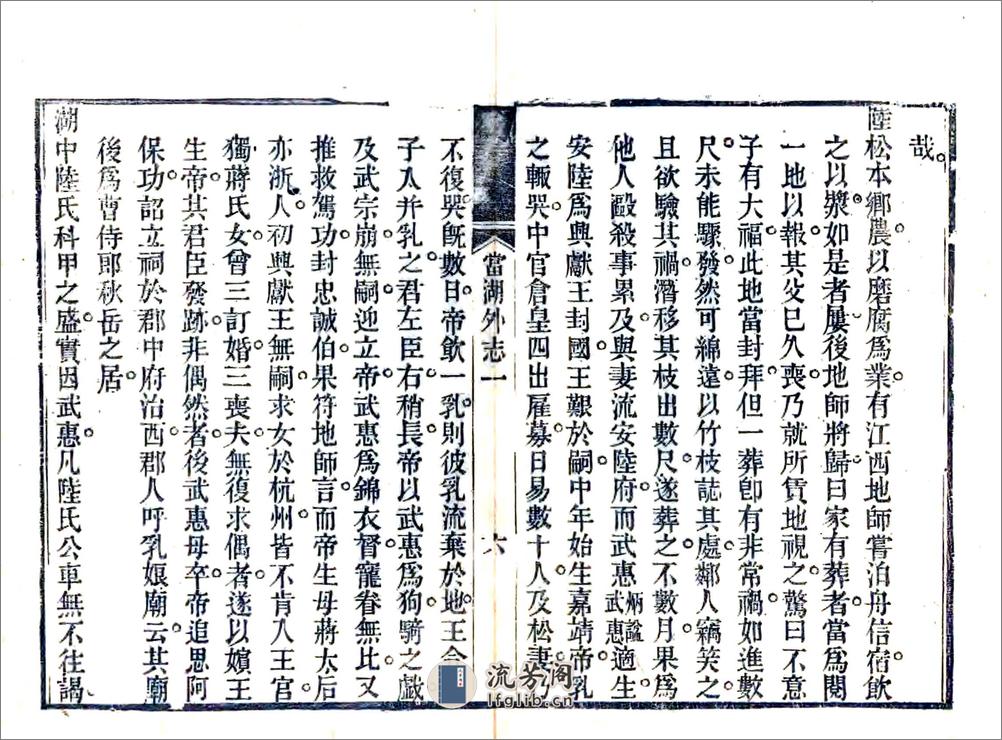 哉。
陸松本鄉農以磨腐爲業。有江西地師嘗泊舟信宿飲
之以漿如是者屢後地師將歸曰家有葬者當爲閱
一地以報其父已久喪乃就所賃地視之驚曰不意
子有大福此地當封拜但一葬卽有非常禍如進數
尺未能驟發然可綿遠以竹枝誌其處鄰人竊笑之
且欲驗其禍潛移其枝出數尺遂葬之不數月果爲
他人毆殺事累及與妻流安陸府而武惠炳謚武惠適生
安陸爲興獻王封國王艱於嗣中年始生嘉靖帝乳
之輒哭中官倉皇四出雇募日易數十人及松妻
當湖外志一
六
不復哭旣數日帝飲一乳則彼乳流棄於地王令
子入并乳之君左臣右稍長帝以武惠爲狗騎之戲
及武宗崩無嗣迎立帝武惠爲錦衣督寵眷無比又
推救駕功封忠誠伯果符地師言而帝生母蔣太后
亦浙人初興獻王無嗣求女於杭州皆不肯入王官
獨蔣氏女曾三訂婚三喪夫無復求偶者遂以嬪王
生帝其君臣發跡非偶然者後武惠母卒帝追思阿
保功詔立祠於郡中府治西郡人呼乳娘廟云其廟
後爲曹侍郎秋岳之居
湖中陸氏科甲之盛實因武惠凡陸氏公車無不往謁
流芳阁
lfglib.cn